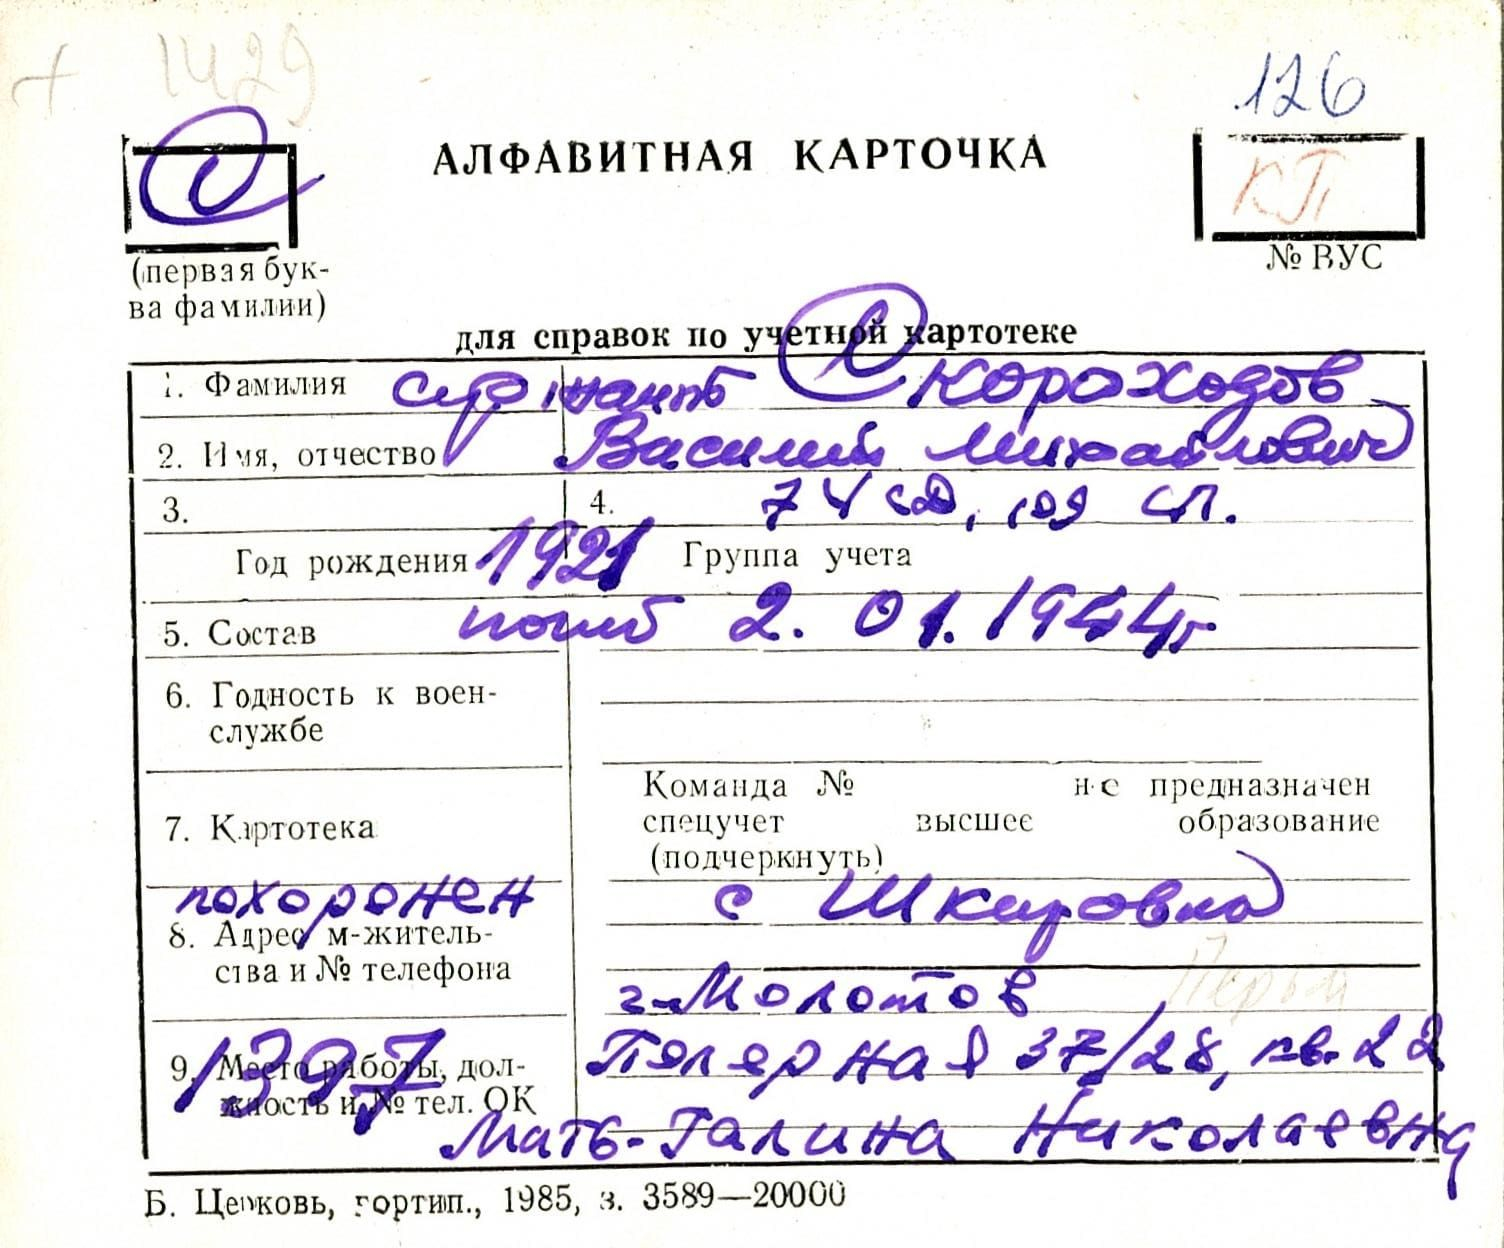 + 1429
126
С
АЛФАВИТНАЯ КАРТОЧКА
КП
(первая бук-
ва фамилии)
№ ВУС
для справок по учетной картотеке
1. Фамилия сержант Скороходов
2. Имя, отчество Василий Михайлович
3. 4. 74 сд, 109 сп.
Год рождения 1921 Группа учета
5. Состав погиб 2. 01. 1944г
6. Годность к воен-
службе
Команда № не предназначен
7. Картотека спецучет высшее образование
(подчеркнуть)
похоронен с Шкаровка
8. Адрес м-житель-
ства и № телефона
г. Молотов Пермь
1397 37/28, кв. 22
9. Место работы, дол-
жность и № тел. ОК
Мать-Галина Николаевна
Б. Церковь, гортип., 1985, з. 3589—20000